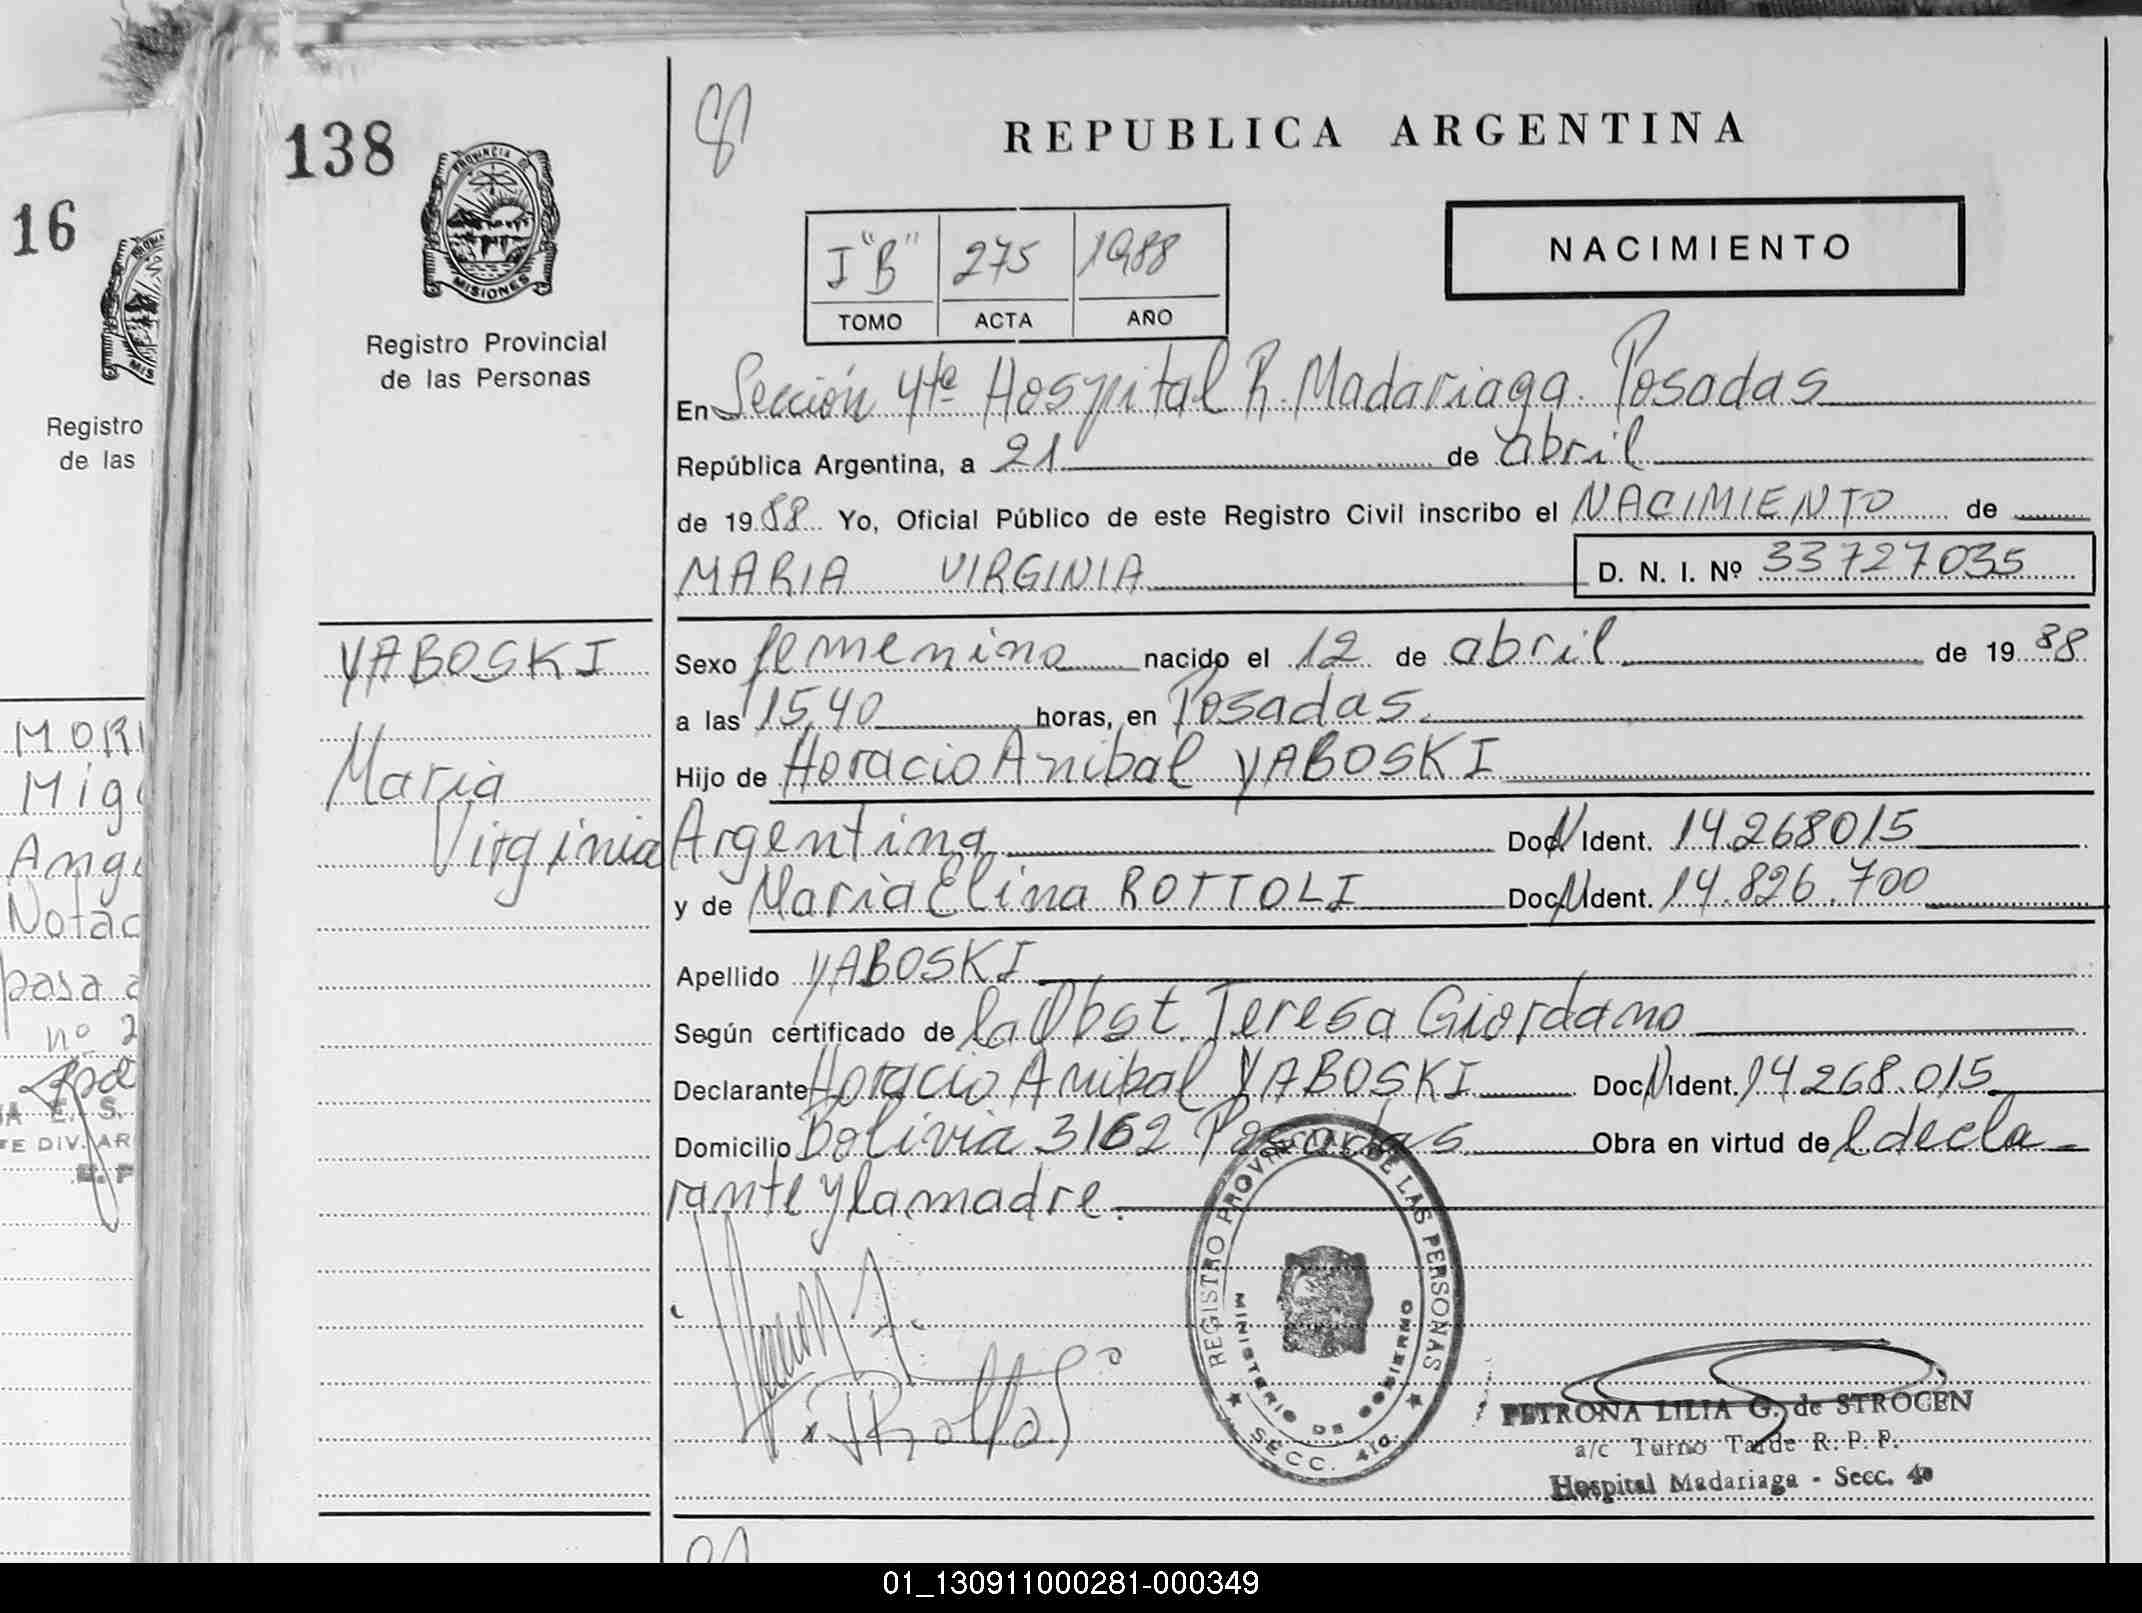 16
Registro
de las
MORI
Mig
Ang
Notac
pasa a
nº 2
E. S.
FE DIV. AR
138
PROVINCIA D
MISIONES
Registro Provincial
de las Personas
YABOSKI
Maria
Virginia
REPUBLICA ARGENTINA
I "B" 275 1988
TOMO ACTA AÑO
NACIMIENTO
En Sección 4ta Hospital R. Madariaga. Posadas
República Argentina, a 21 de abril
de 1988 Yo, Oficial Público de este Registro Civil inscribo el NACIMIENTO de
MARIA VIRGINIA D. N. I. Nº 33727035
Sexo femenino nacido el 12 de abril de 1988
a las 15,40 horas, en Posadas.
Hijo de Horacio Anibal YABOSKI
Argentina Doc N Ident. 14.268015
y de Maria Elina ROTTOLI Doc N Ident. 14.826.700
Apellido YABOSKI
Según certificado de la Obst. Teresa Giordano
Declarante Horacio Anibal YABOSKI Doc N Ident. 14268.015
Domicilio Bolivia 3162 Posadas Obra en virtud de l decla-
rante y la madre.
REGISTRO PROVINCIAL DE LAS PERSONAS
MINISTERIO DE GOBIERNO
SECC. 4ta.
PETRONA LILIA G. de STROCEN
a/c Turno Tarde R. P. P.
Hospital Madariaga - Secc. 4a
01_130911000281-000349